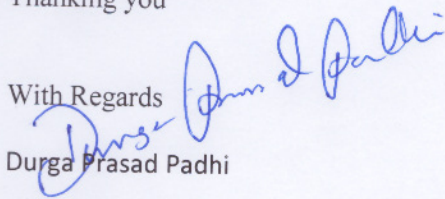 Thanking you
With Regards
Durga Prasad Padhi
Durga Prasad Padhi